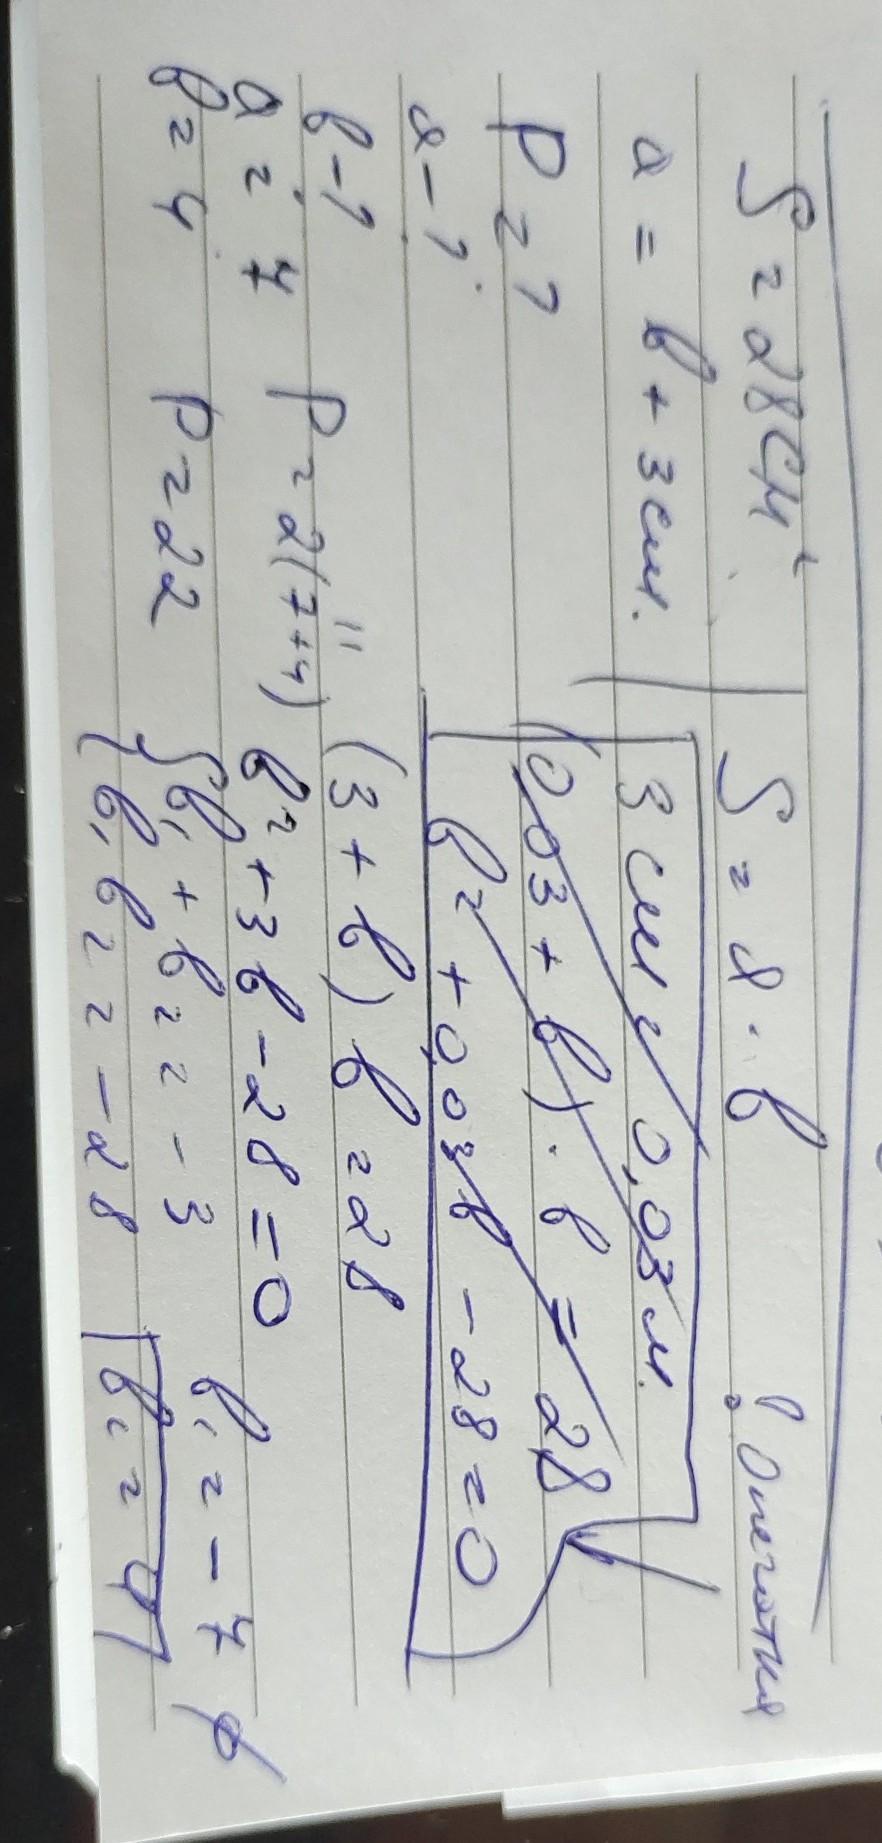 S = 28 см²
a = b + 3 см.
P = ?
a - ?
b - ?
a = 7
b = 4
P = 2(7+4)
11
P = 22
S = a · b
! Опечатка
3 см = 0,03 м.
(0,03 + b) · b = 28
b² + 0,03b - 28 = 0
(3 + b) b = 28
b² + 3b - 28 = 0
{ b₁ + b₂ = -3
b₁ b₂ = -28
b₁ = -7 ∅
b₂ = 4